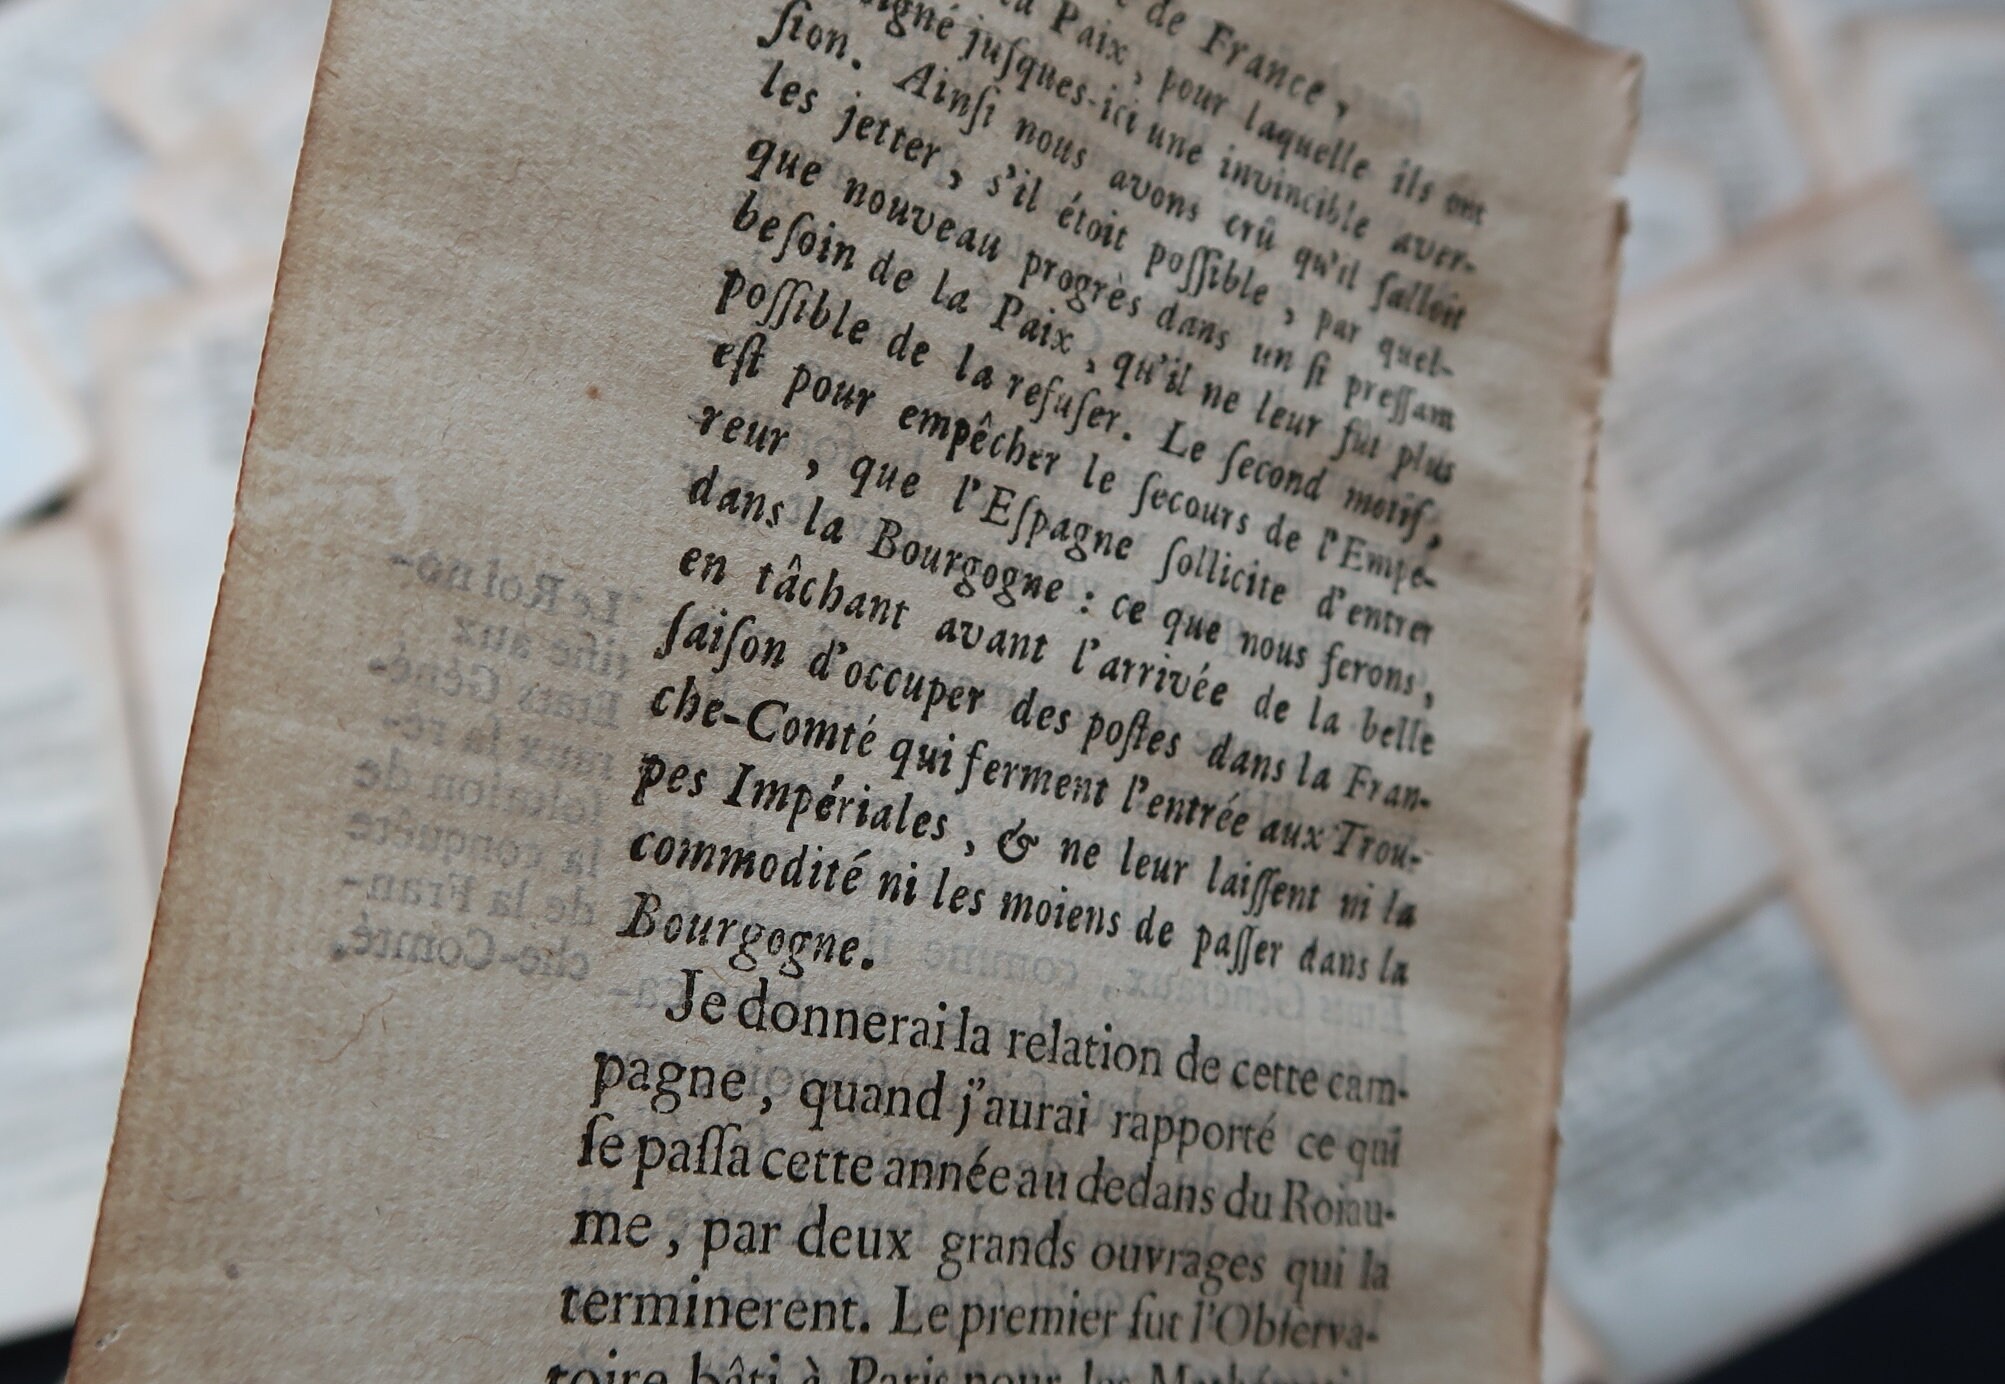 de France,
la Paix, pour laquelle ils ont
juſques-ici une invincible aver-
ſion. Ainſi nous avons crû qu'il falloit
les jetter, s'il étoit poſſible, par quel-
que nouveau progrès dans un ſi preſſant
beſoin de la Paix, qu'il ne leur fût plus
poſſible de la refuſer. Le ſecond motif,
eſt pour empêcher le ſecours de l'Empe-
reur, que l'Eſpagne ſollicite d'entrer
dans la Bourgogne: ce que nous ferons,
en tâchant avant l'arrivée de la belle
ſaiſon d'occuper des poſtes dans la Fran-
che-Comté qui ferment l'entrée aux Trou-
pes Impériales, & ne leur laiſſent ni la
commodité ni les moiens de paſſer dans la
Bourgogne.
Je donnerai la relation de cette cam-
pagne, quand j'aurai rapporté ce qui
ſe paſſa cette année au dedans du Roiau-
me, par deux grands ouvrages qui la
terminerent. Le premier fut l'Obſerva-
toire bâti à Paris pour les
Le Roi no-
tifie aux
Etats Géné-
raux ſa ré-
ſolution de
la conquête
de la Fran-
che-Comté.